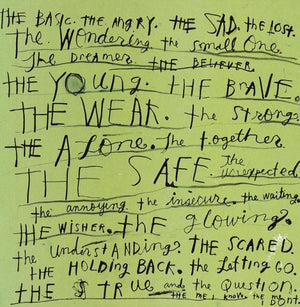 THE BASIC. THE ANGRY. THE SAD. THE LOST.
The Wondering. the small One.
The Dreamer. THE BELIEVER.
THE YOUNG. THE BRAVE.
THE WEAK. the strong.
THE Alone. The together.
THE SAFE. The unexpected.
the annoying the insecure. the waiting.
THE WISHER. the glowing.
the UnderstANDing. THE SCARED.
THE HOLDING BACK. the Letting GO.
THE TRUE and the Question.
THE ME I know. the me I DONT.